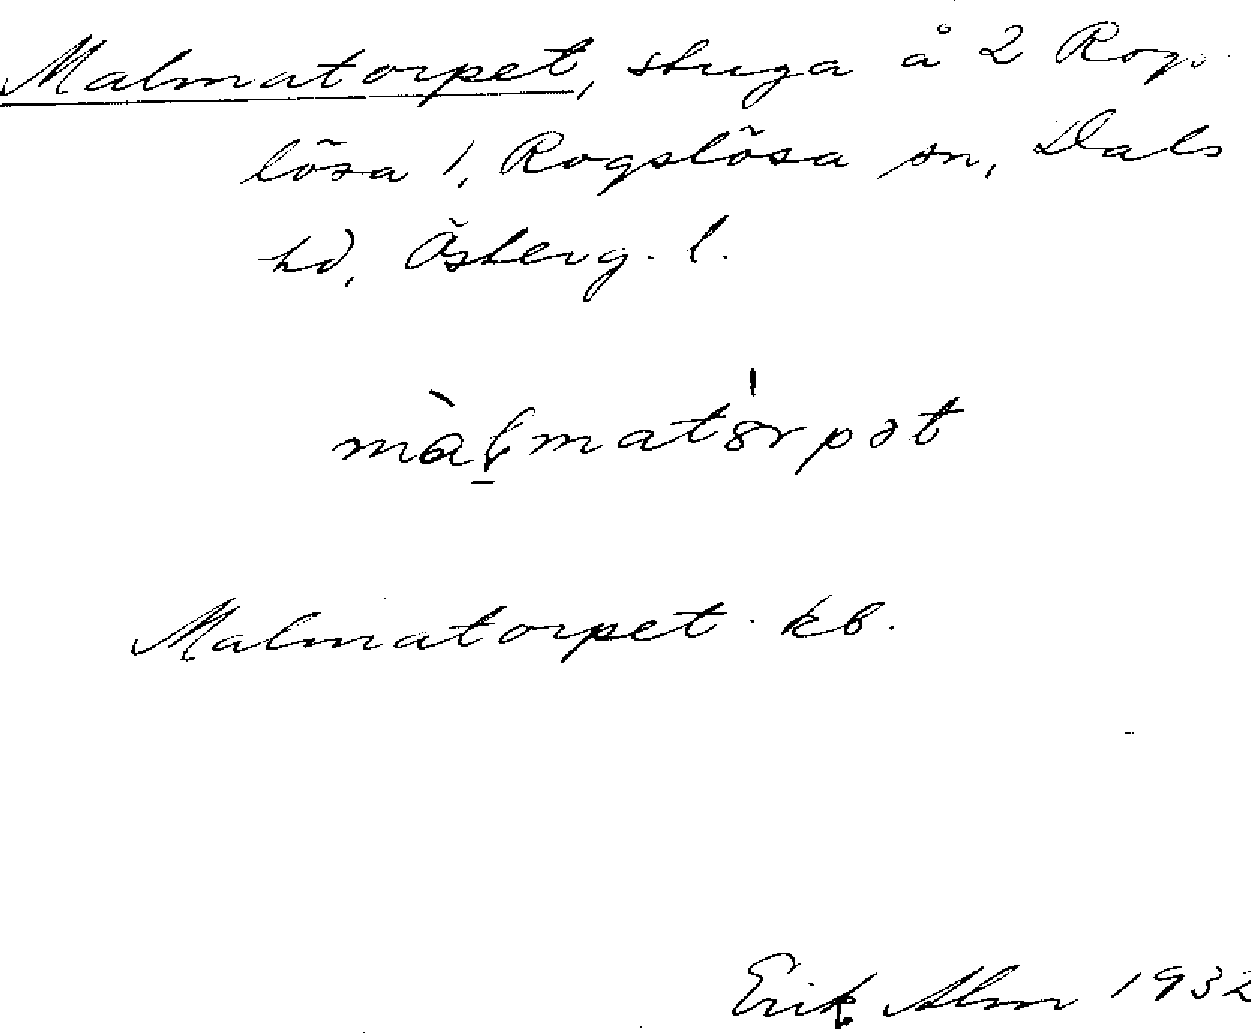 Malmatorpet, stuga å 2 Rogs-
lösa 1, Rogslösa sn, Dals
hd, Österg. l.
màl̠matȯrpət
Malmatorpet kb.
Erik Alm 1932